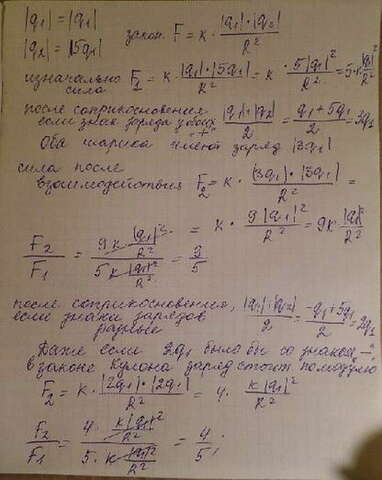 |q₁| = |q₁|
|q₂| = |5q₁|
закон F = к · |q₁|·|q₂| / R²
изначально сила F₁ = к · |q₁|·|5q₁| / R² = к · 5|q₁|² / R² = 5·к |q₁|² / R²
после соприкосновения
если знак заряда у обоих "+" |q₁|+|q₂| / 2 = q₁+5q₁ / 2 = 3q₁
Оба шарика имеют заряд |3q₁|
сила после
взаимодействия F₂ = к · |3q₁|·|3q₁| / R² =
= к · 9|q₁|² / R² = 9к · |q₁|² / R²
F₂ / F₁ = 9к |q₁|² / R² / 5к |q₁|² / R² = 9 / 5
после соприкосновения,
если знаки зарядов
разные |q₁|+|q₂| / 2 = -q₁+5q₁ / 2 = 2q₁
Даже если 2q₁ было бы со знаком "-",
в законе Кулона заряд стоит по модулю
F₂ = к · |2q₁|·|2q₁| / R² = 4 · к|q₁|² / R²
F₂ / F₁ = 4 · к|q₁|² / R² / 5 · к|q₁|² / R² = 4 / 5